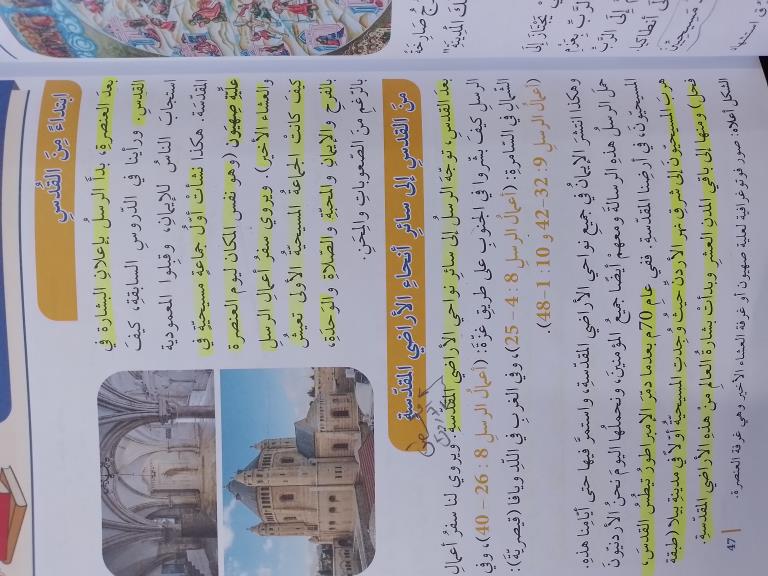 ابتداءً مِنَ القُدْسِ
بعدَ العنصرةِ، بدأَ الرسلُ بإعلانِ البشارةِ في
القدسِ. ورأينا في الدّروسِ السابقةِ، كيفَ
استجابَ الناسُ للإيمانِ، وقَبِلوا المعموديةَ
المقدّسةَ. هكذا نشأتْ أوّلُ جماعةٍ مسيحيّةٍ في
علّيّةِ صِهيَون (وهو نفس المكان ليوم العنصرة
والعشاء الأخير). ويروي سفرُ أعمالِ الرسلِ
كيفَ كانت الجماعةُ المسيحيّةُ الأولى تعيشُ
بالفرحِ والإيمانِ والمحبّةِ والصّلاةِ والوَحدَةِ،
بالرّغمِ من الصّعوباتِ والمِحَنِ.
منَ القدسِ إلى سائرِ أنحاءِ الأراضي المقدّسةِ
بعد القدس، توجّهَ الرسلُ إلى سائرِ نواحي الأراضي المقدّسةِ. ويروي لنا سفرُ أعمالِ
الرسلِ كيفَ بشّروا في الجنوبِ على طريقِ غزّةَ: (أعمالُ الرسلِ 8 : 26 – 40)، وفي
الشمالِ في السامرةِ: (أعمالُ الرسلِ 8 : 4 – 25)، وفي الغربِ في اللّدِ ويافا (قيصريّة):
(أعمالُ الرسلِ 9 : 32–42 و 10 : 1–48).
وهكذا انتشرَ الإيمانُ في جميعِ نواحي الأراضي المقدّسةِ، واستمرَّ فيها حتى أيامِنا هذهِ.
حملَ الرسلُ هذهِ الرسالةَ ومعهُمْ أيضًا جميعُ المؤمنينَ، ونحملُها اليومَ نحنُ الأردنيّونَ
المسيحيّونَ، في أرضِنا المقدّسةِ. ففي عامِ 70م بعدما دمّرَ الإمبراطورُ تيطُس القدسَ،
هربَ المسيحيّونَ إلى شرقِ نهرِ الأردنِّ حيثُ وُجدت المسيحيّةُ أوّلًا في مدينةِ بيلا (طبقة
فحل) ومنها إلى باقي المدنِ العشرِ وبدأتْ بشارةُ العالمِ مِنْ هذهِ الأراضي المقدّسةِ.
الشكل أعلاه: صور فوتوغرافية لعلية صهيون أو غرفة العشاء الأخير وهي غرفة العنصرة.
47